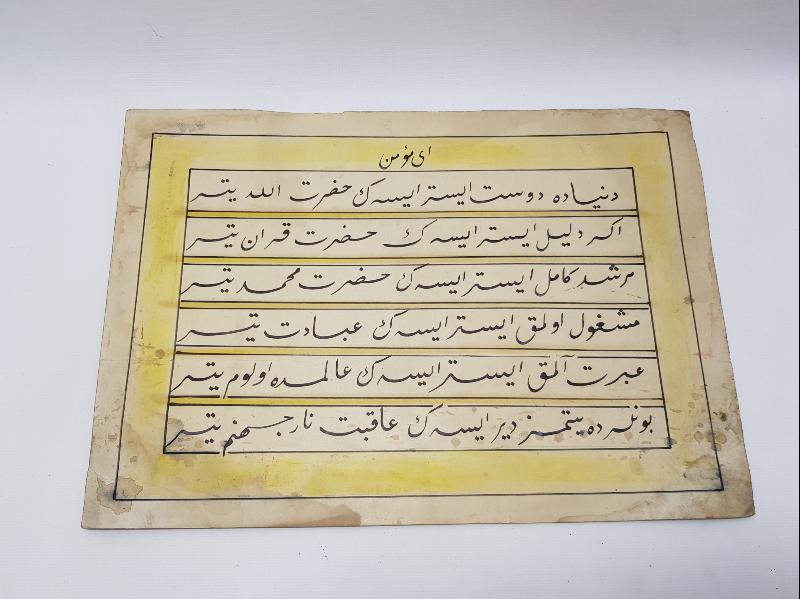 ای مؤمن
دنیاده دوست ایستر ایسه ك حضرت الله یتر
اكر دلیل ایستر ایسه ك حضرت قران یتر
مرشد كامل ایستر ایسه ك حضرت محمد یتر
مشغول اولمق ایستر ایسه ك عبادت یتر
عبرت آلمق ایستر ایسه ك عالمده اولوم یتر
بونلر ده یتمز دیر ایسه ك عاقبت نار جهنم یتر